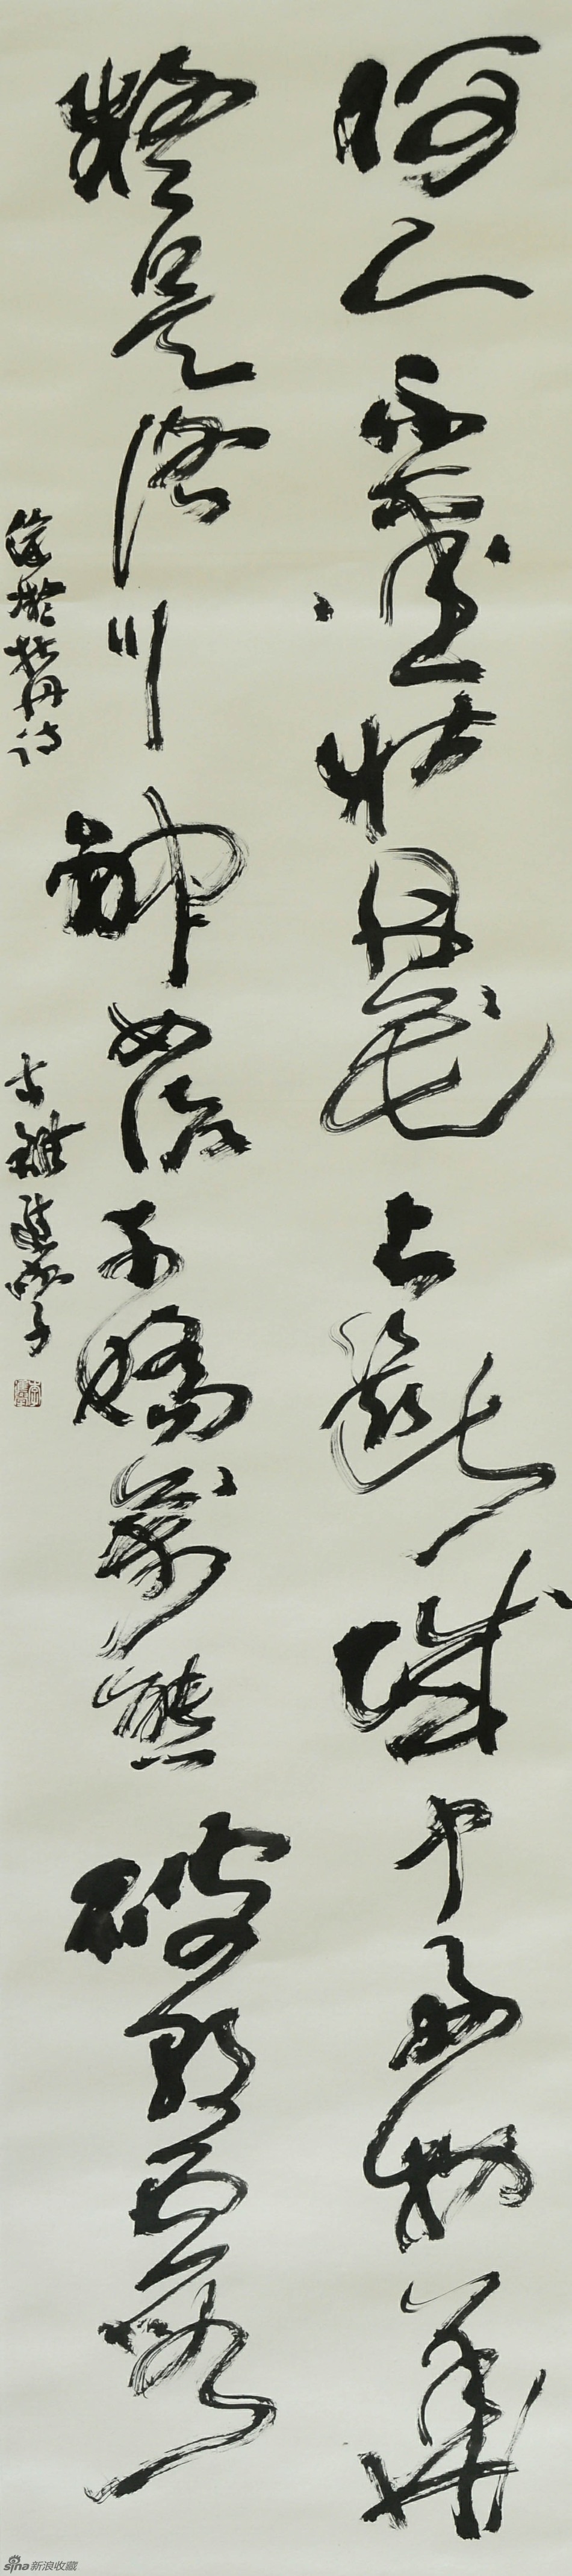 何人不愛牡丹花占斷城中好物華
疑是洛川神女作千嬌萬態破朝霞
徐凝牡丹詩
sina新浪收藏